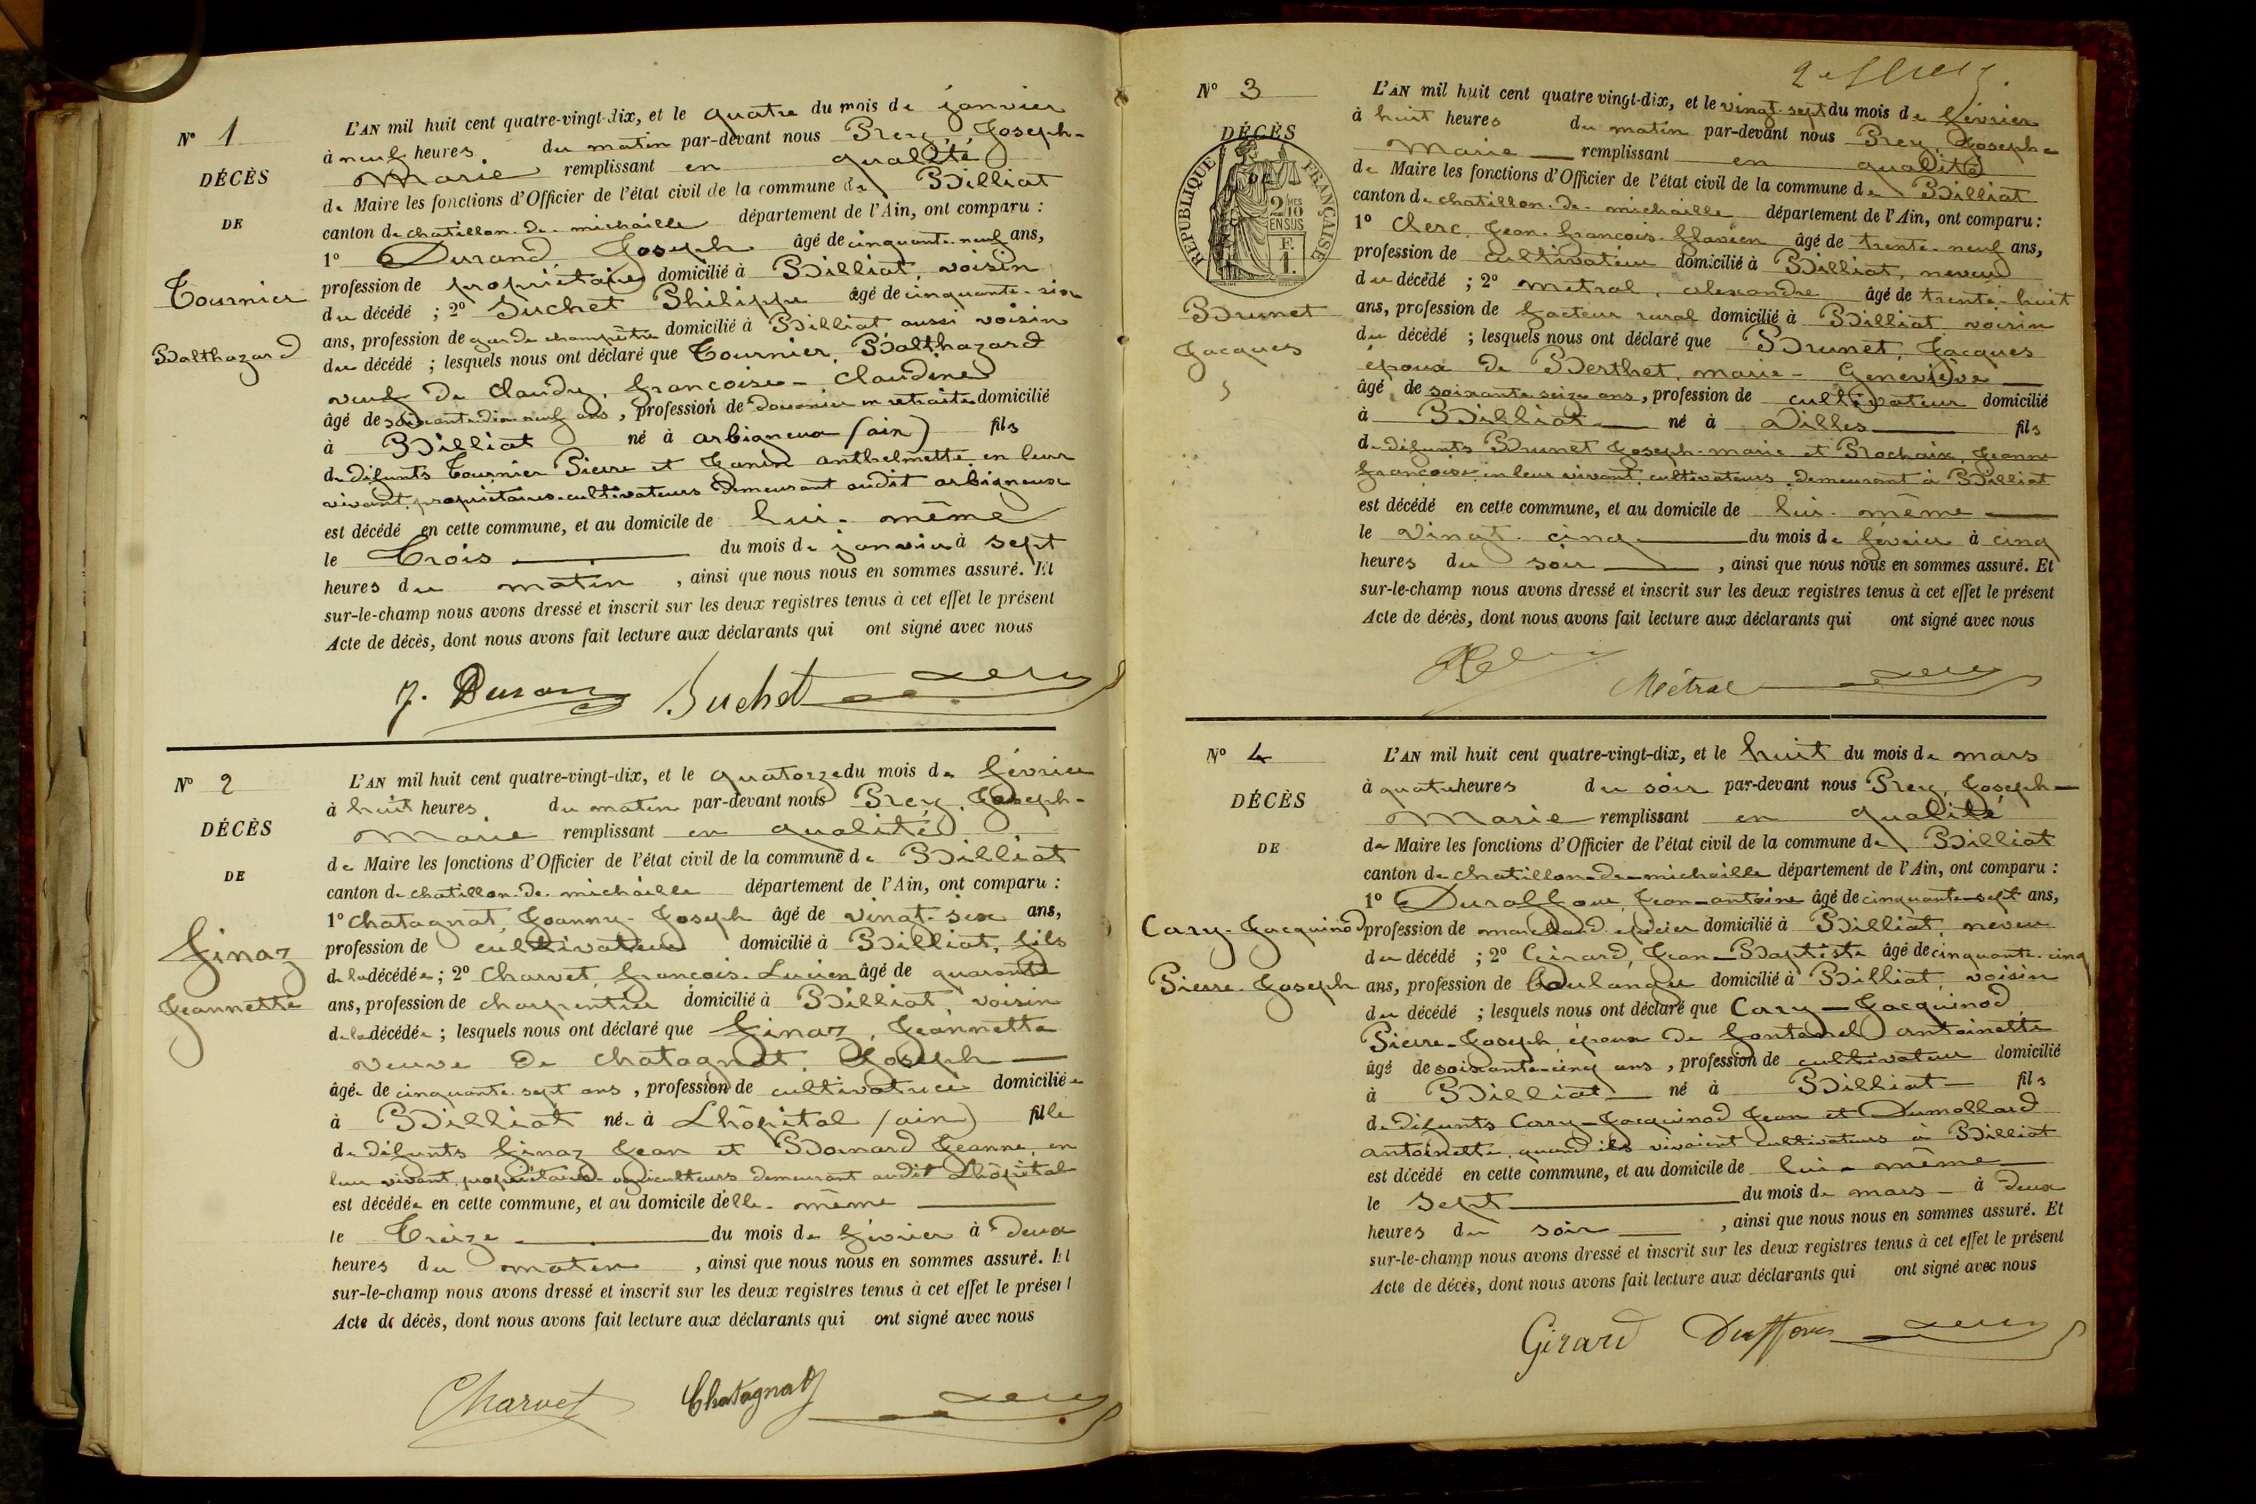 N° 1
DÉCÈS
DE
Tournier
Balthazard
L'AN mil huit cent quatre-vingt-dix, et le quatre du mois de janvier
à neuf heures du matin par-devant nous Prey, Joseph-
Marie remplissant en qualité
de Maire les fonctions d'Officier de l'état civil de la commune de Billiat
canton de chatillon-de-michaille département de l'Ain, ont comparu :
1° Durand Joseph âgé de cinquante-neuf ans,
profession de propriétaire domicilié à Billiat, voisin
du décédé ; 2° Suchet Philippe âgé de cinquante-six
ans, profession de garde champêtre domicilié à Billiat aussi voisin
du décédé ; lesquels nous ont déclaré que Tournier, Balthazard
veuf de Claudy, françoise-Claudine
âgé de soixante-dix-neuf ans, profession de douanier en retraite domicilié
à Billiat né à arbigneux (ain) fils
de défunts Tournier Pierre et Janin anthelmette en leur
vivant, propriétaires-cultivateurs demeurant audit arbigneux
est décédé en cette commune, et au domicile de lui-même
le Trois du mois de janvier à sept
heures du matin, ainsi que nous nous en sommes assuré. Et
sur-le-champ nous avons dressé et inscrit sur les deux registres tenus à cet effet le présent
Acte de décès, dont nous avons fait lecture aux déclarants qui ont signé avec nous
J. Durand Suchet
N° 2
DÉCÈS
DE
Ginaz
Jeannette
L'AN mil huit cent quatre-vingt-dix, et le quatorze du mois de février
à huit heures du matin par-devant nous Prey, Joseph-
Marie remplissant en qualité
de Maire les fonctions d'Officier de l'état civil de la commune de Billiat
canton de chatillon-de-michaille département de l'Ain, ont comparu :
1° Chatagnat, Joanny-Joseph âgé de vingt-six ans,
profession de cultivateur domicilié à Billiat, fils
de la décédée ; 2° Charvet, françois-Lucien âgé de quarante
ans, profession de charpentier domicilié à Billiat voisin
de la décédée ; lesquels nous ont déclaré que Ginaz, Jeannette
veuve de chatagnat, Joseph
âgée de cinquante-sept ans, profession de cultivatrice domiciliée
à Billiat née à Lhôpital (ain) fille
de défunts Ginaz Jean et Bornard Jeanne, en
leur vivant, propriétaires-agriculteurs demeurant audit Lhôpital
est décédée en cette commune, et au domicile d'elle-même
le Treize du mois de février à deux
heures du matin, ainsi que nous nous en sommes assuré. Et
sur-le-champ nous avons dressé et inscrit sur les deux registres tenus à cet effet le présent
Acte de décès, dont nous avons fait lecture aux déclarants qui ont signé avec nous
Charvet Chatagnat
N° 3
DÉCÈS
DE
RÉPUBLIQUE FRANÇAISE
2/10
EN SUS
F.
1.
Brunet
Jacques
L'AN mil huit cent quatre vingt-dix, et le vingt-sept du mois de février
à huit heures du matin par-devant nous Prey, Joseph-
Marie remplissant en qualité
de Maire les fonctions d'Officier de l'état civil de la commune de Billiat
canton de chatillon-de-michaille département de l'Ain, ont comparu :
1° Clerc, Jean-françois-flavien âgé de trente-neuf ans,
profession de cultivateur domicilié à Billiat, neveu
du décédé ; 2° metral, alexandre âgé de trente-huit
ans, profession de facteur rural domicilié à Billiat voisin
du décédé ; lesquels nous ont déclaré que Brunet, Jacques
époux de Berthet, marie-Geneviève
âgé de soixante-seize ans, profession de cultivateur domicilié
à Billiat né à Villes fils
de défunts Brunet Joseph-marie et Prochaix, Jeanne
françoise, en leur vivant, cultivateurs, demeurant à Billiat
est décédé en cette commune, et au domicile de lui-même
le vingt-cinq du mois de février à cinq
heures du soir, ainsi que nous nous en sommes assuré. Et
sur-le-champ nous avons dressé et inscrit sur les deux registres tenus à cet effet le présent
Acte de décès, dont nous avons fait lecture aux déclarants qui ont signé avec nous
Métral
N° 4
DÉCÈS
DE
Carry-Jacquinod
Pierre-Joseph
L'AN mil huit cent quatre-vingt-dix, et le huit du mois de mars
à quatre heures du soir par-devant nous Prey, Joseph-
Marie remplissant en qualité
de Maire les fonctions d'Officier de l'état civil de la commune de Billiat
canton de chatillon-de-michaille département de l'Ain, ont comparu :
1° Duraffour, Jean-antoine âgé de cinquante-sept ans,
profession de marchand épicier domicilié à Billiat, neveu
du décédé ; 2° Girard, Jean-Baptiste âgé de cinquante-cinq
ans, profession de boulanger domicilié à Billiat, voisin
du décédé ; lesquels nous ont déclaré que Carry-Jacquinod
Pierre-Joseph époux de fontanel antoinette
âgé de soixante-cinq ans, profession de cultivateur domicilié
à Billiat né à Billiat fils
de défunts Carry-Jacquinod Jean et Dumollard
antoinette, quand ils vivaient cultivateurs à Billiat
est décédé en cette commune, et au domicile de lui-même
le sept du mois de mars à deux
heures du soir, ainsi que nous nous en sommes assuré. Et
sur-le-champ nous avons dressé et inscrit sur les deux registres tenus à cet effet le présent
Acte de décès, dont nous avons fait lecture aux déclarants qui ont signé avec nous
Girard Duffour